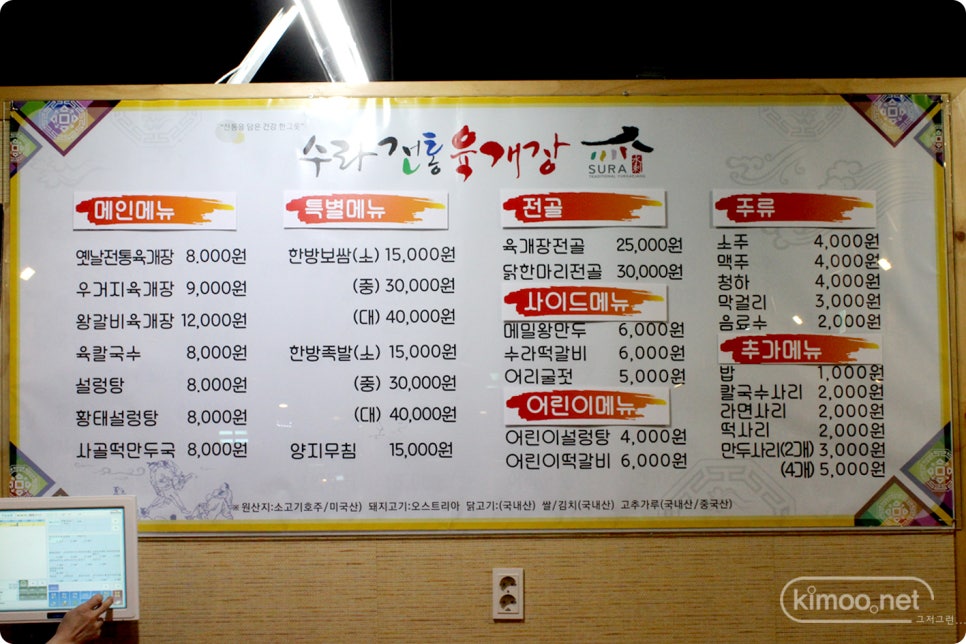 "전통을 담은 건강 한그릇"
수라전통육개장
SURA
TRADITIONAL YUKGAEJANG
메인메뉴
옛날전통육개장 8,000원
우거지육개장 9,000원
왕갈비육개장 12,000원
육칼국수 8,000원
설렁탕 8,000원
황태설렁탕 8,000원
사골떡만두국 8,000원
특별메뉴
한방보쌈(소) 15,000원
(중) 30,000원
(대) 40,000원
한방족발(소) 15,000원
(중) 30,000원
(대) 40,000원
양지무침 15,000원
전골
육개장전골 25,000원
닭한마리전골 30,000원
사이드메뉴
메밀왕만두 6,000원
수라떡갈비 6,000원
어리굴젓 5,000원
어린이메뉴
어린이설렁탕 4,000원
어린이떡갈비 6,000원
주류
소주 4,000원
맥주 4,000원
청하 4,000원
막걸리 3,000원
음료수 2,000원
추가메뉴
밥 1,000원
칼국수사리 2,000원
라면사리 2,000원
떡사리 2,000원
만두사리(2개) 3,000원
(4개) 5,000원
※원산지:소고기호주/미국산) 돼지고기:오스트리아 닭고기:(국내산) 쌀/김치(국내산) 고추가루(국내산/중국산)
kimoo.net
그저그런...